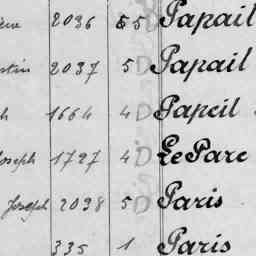 2036 5 D Papail
2037 5 D Papail
1664 4 D Papcil
Joseph 1727 4 D Le Parc
Joseph 2038 5 D Paris
335 1 Paris